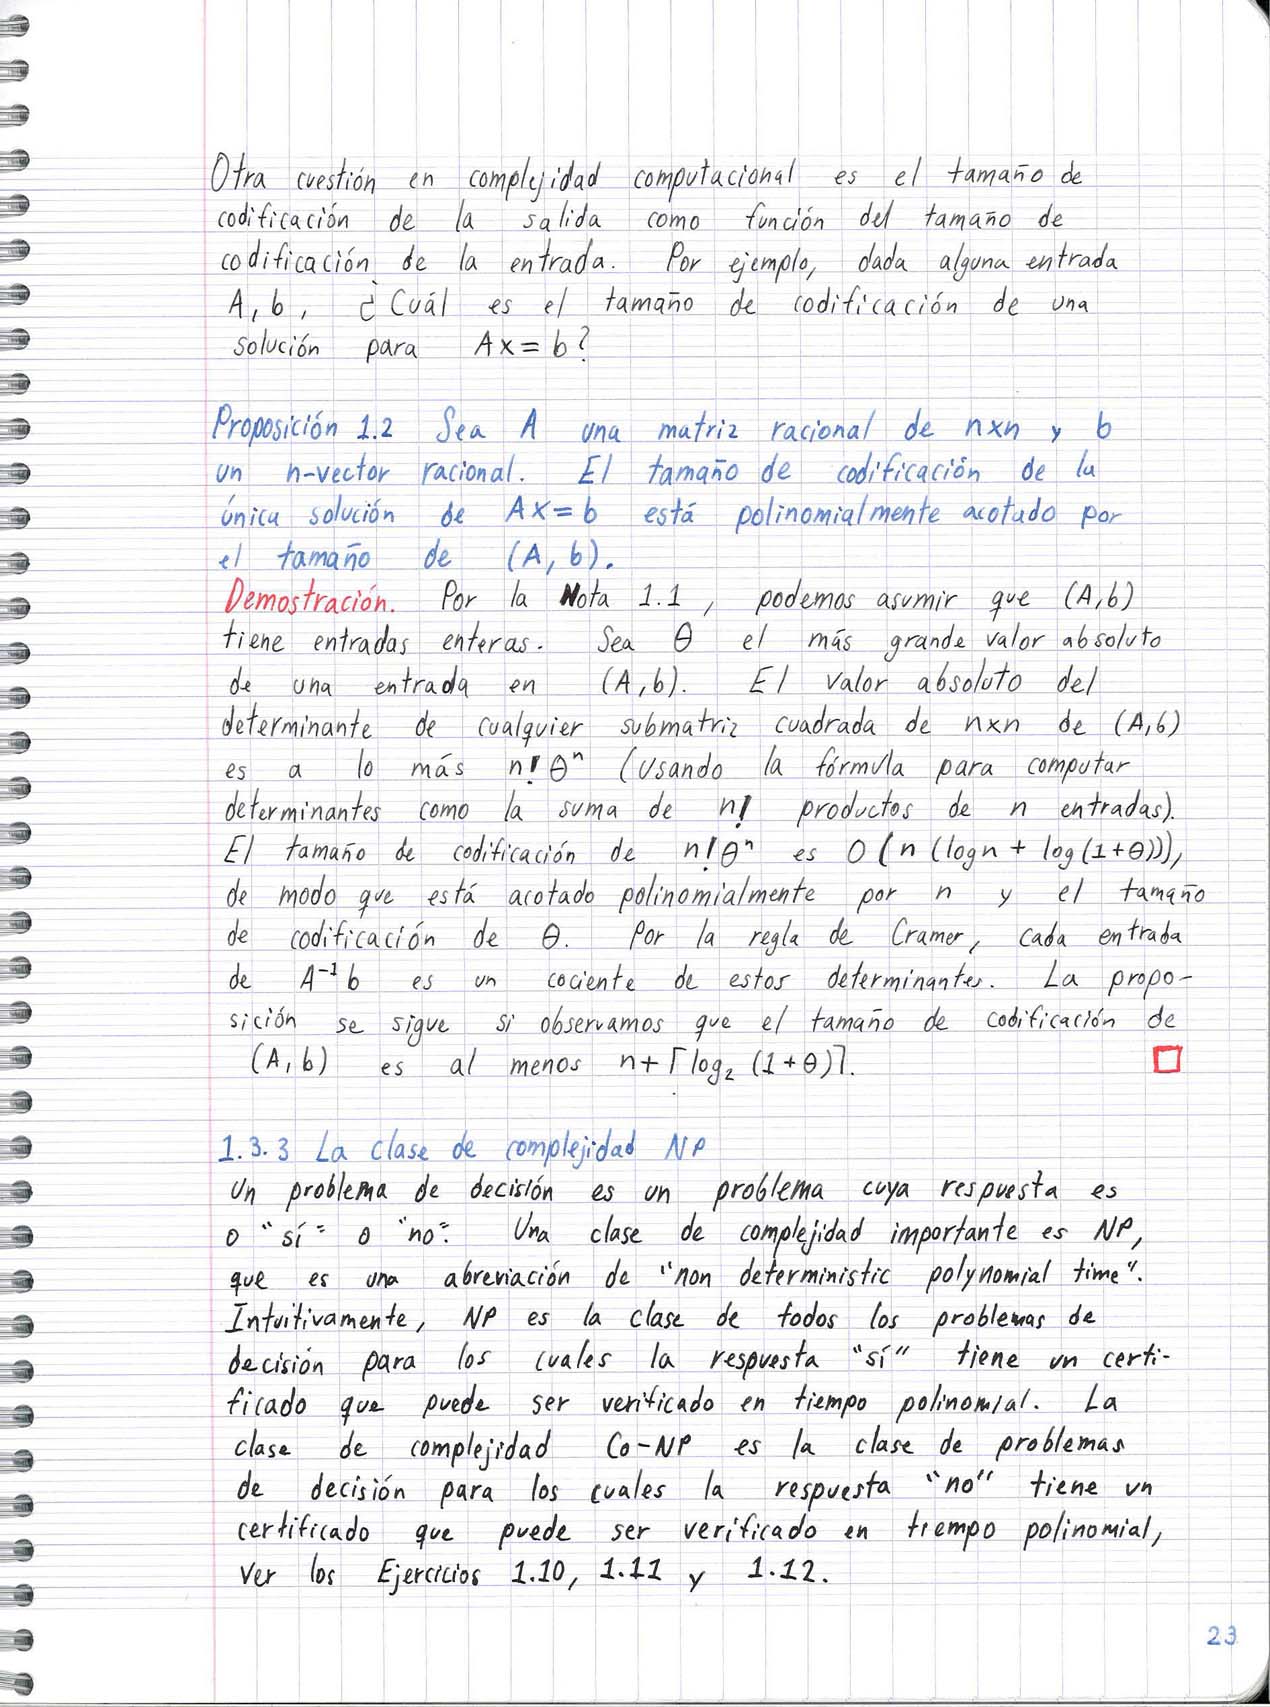 Otra cuestión en complejidad computacional es el tamaño de
codificación de la salida como función del tamaño de
codificación de la entrada. Por ejemplo, dada alguna entrada
A, b, ¿Cuál es el tamaño de codificación de una
solución para Ax = b?
Proposición 1.2 Sea A una matriz racional de n×n y b
un n-vector racional. El tamaño de codificación de la
única solución de Ax = b está polinomialmente acotado por
el tamaño de (A, b).
Demostración. Por la Nota 1.1, podemos asumir que (A,b)
tiene entradas enteras. Sea θ el más grande valor absoluto
de una entrada en (A,b). El valor absoluto del
determinante de cualquier submatriz cuadrada de n×n de (A,b)
es a lo más n! θⁿ (usando la fórmula para computar
determinantes como la suma de n! productos de n entradas).
El tamaño de codificación de n! θⁿ es O(n (log n + log(1+θ))),
de modo que está acotado polinomialmente por n y el tamaño
de codificación de θ. Por la regla de Cramer, cada entrada
de A⁻¹b es un cociente de estos determinantes. La propo-
sición se sigue si observamos que el tamaño de codificación de
(A,b) es al menos n+⌈log₂ (1+θ)⌉.
1.3.3 La clase de complejidad NP
Un problema de decisión es un problema cuya respuesta es
o "sí" o "no". Una clase de complejidad importante es NP,
que es una abreviación de "non deterministic polynomial time".
Intuitivamente, NP es la clase de todos los problemas de
decisión para los cuales la respuesta "sí" tiene un certi-
ficado que puede ser verificado en tiempo polinomial. La
clase de complejidad Co-NP es la clase de problemas
de decisión para los cuales la respuesta "no" tiene un
certificado que puede ser verificado en tiempo polinomial,
Ver los Ejercicios 1.10, 1.11 y 1.12.
23